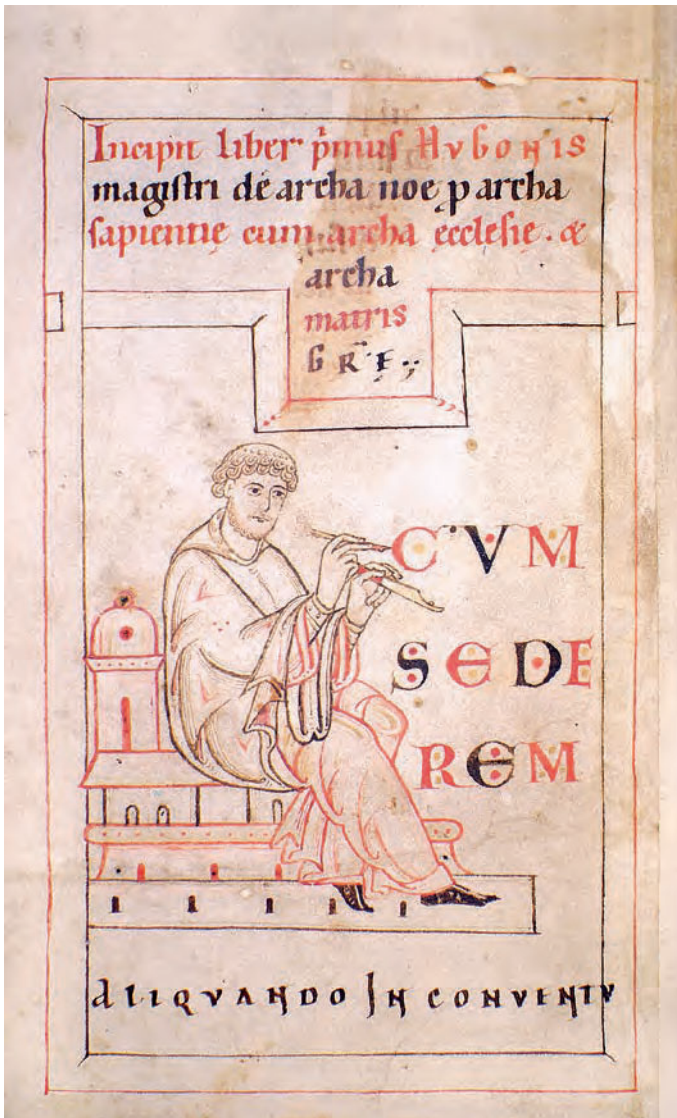 Incipit liber p̄muſ HVGONIS
magiſtri de archa noe ꝓ archa
ſapientię cum archa ęccleſię. &
archa
matris
GR̄Ę
CVM
SEDE
REM
ALIQVANDO IN CONVENTV